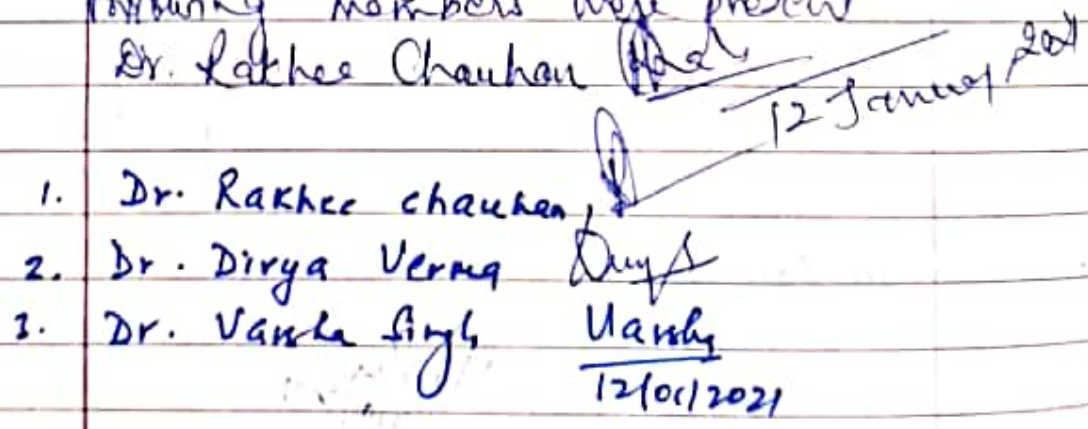 Members were present
Dr. Rakhee Chauhan
12 January 2021
1. Dr. Rakhee chauhan,
2. Dr. Divya Verma
3. Dr. Varsha Singh Varsha
12/01/2021